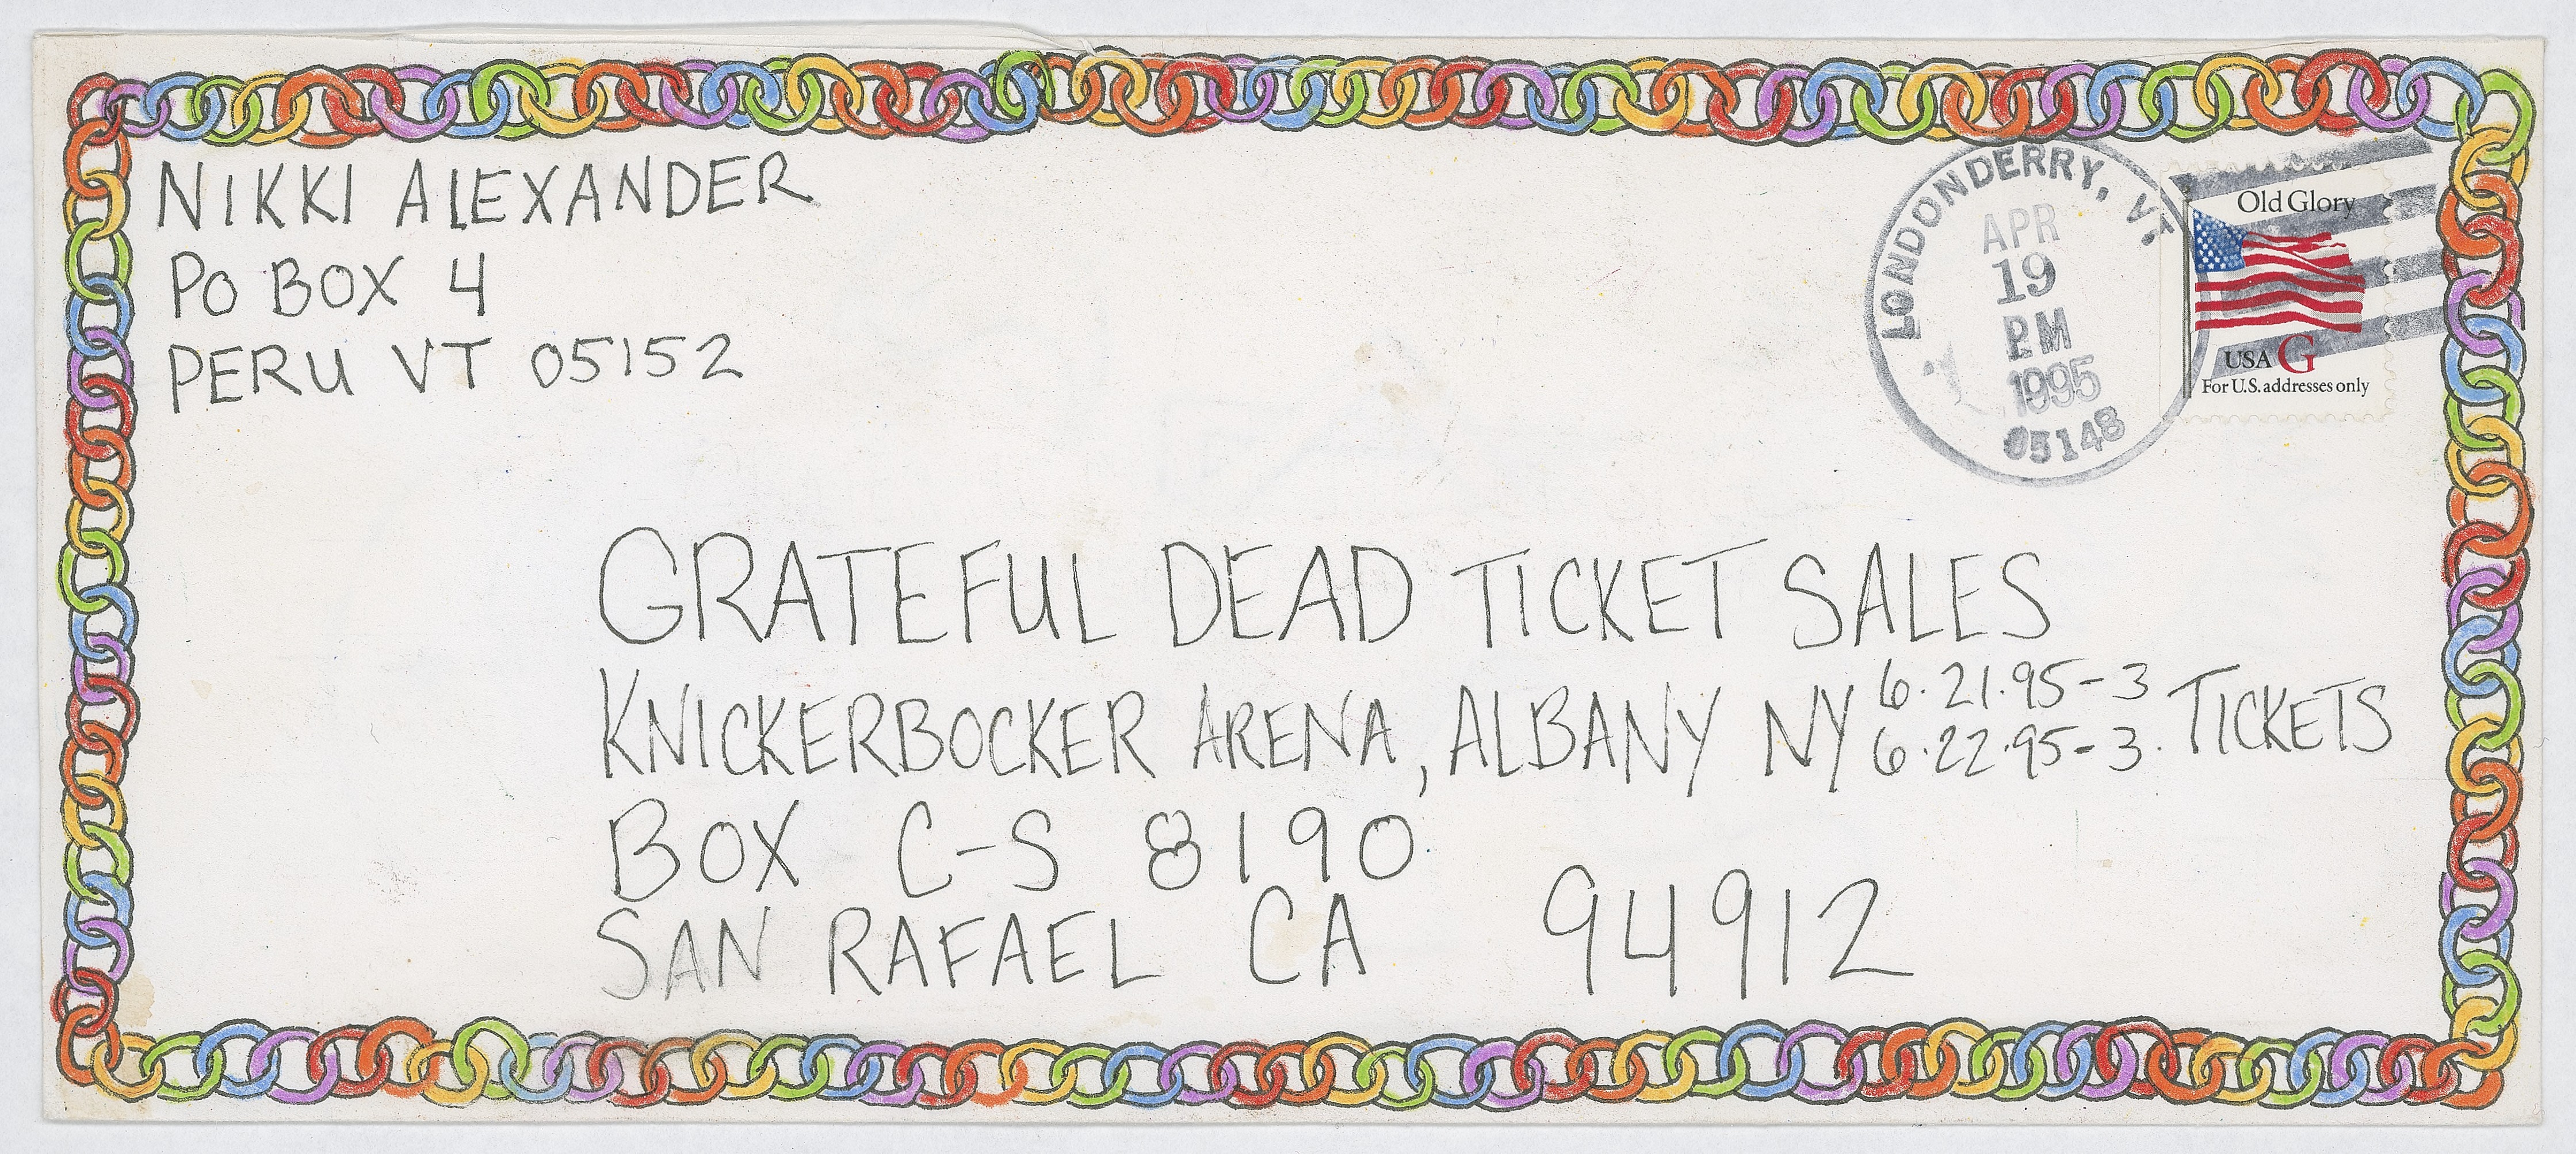 NIKKI ALEXANDER
PO BOX 4
PERU VT 05152
LONDONDERRY, VT.
APR
19
PM
1995
05148
Old Glory
USA G
For U.S. addresses only
GRATEFUL DEAD TICKET SALES
KNICKERBOCKER ARENA, ALBANY NY 6.21.95-3 TICKETS
6.22.95-3.
BOX C-S 8190
SAN RAFAEL CA 94912